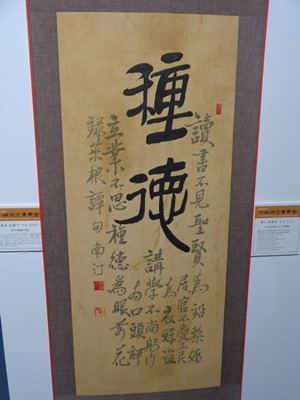 種德
讀書不見聖賢為鉛槧傭
居官不愛子民
為衣冠盜
講學不尚躬行
為口頭禪
立業不思種德為眼前花
錄菜根譚句南汀